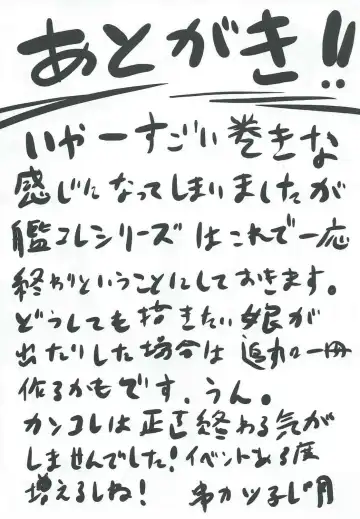 あとがき!!
いやーすごい巻きな
感じになってしまいましたが
艦コレシリーズはこれで一応
終わりということにしておきます。
どうしても描きたい娘が
出たりした場合は追加一冊
作るかもです、うん。
カンコレは正直終わる気が
しませんでした!イベントある度
増えるしね! 串カツ子しげ月